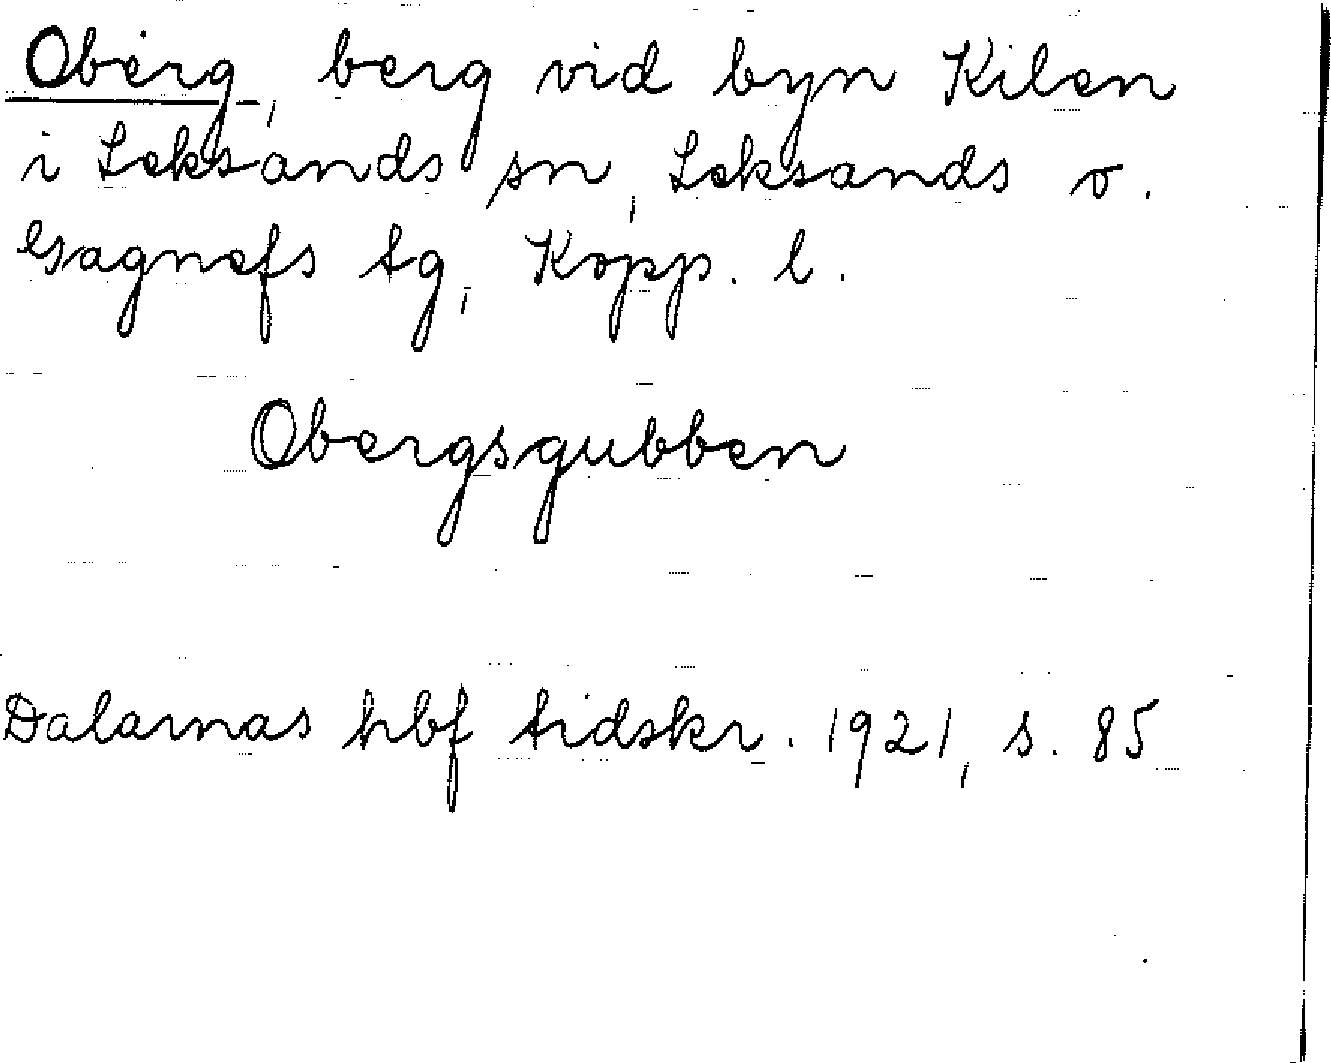 Oberg, berg vid byn Kilen
i Leksands sn, Leksands o.
Gagnefs tg, Kopp. l.
Obergsgubben
Dalarnas hbf tidskr. 1921, s. 85